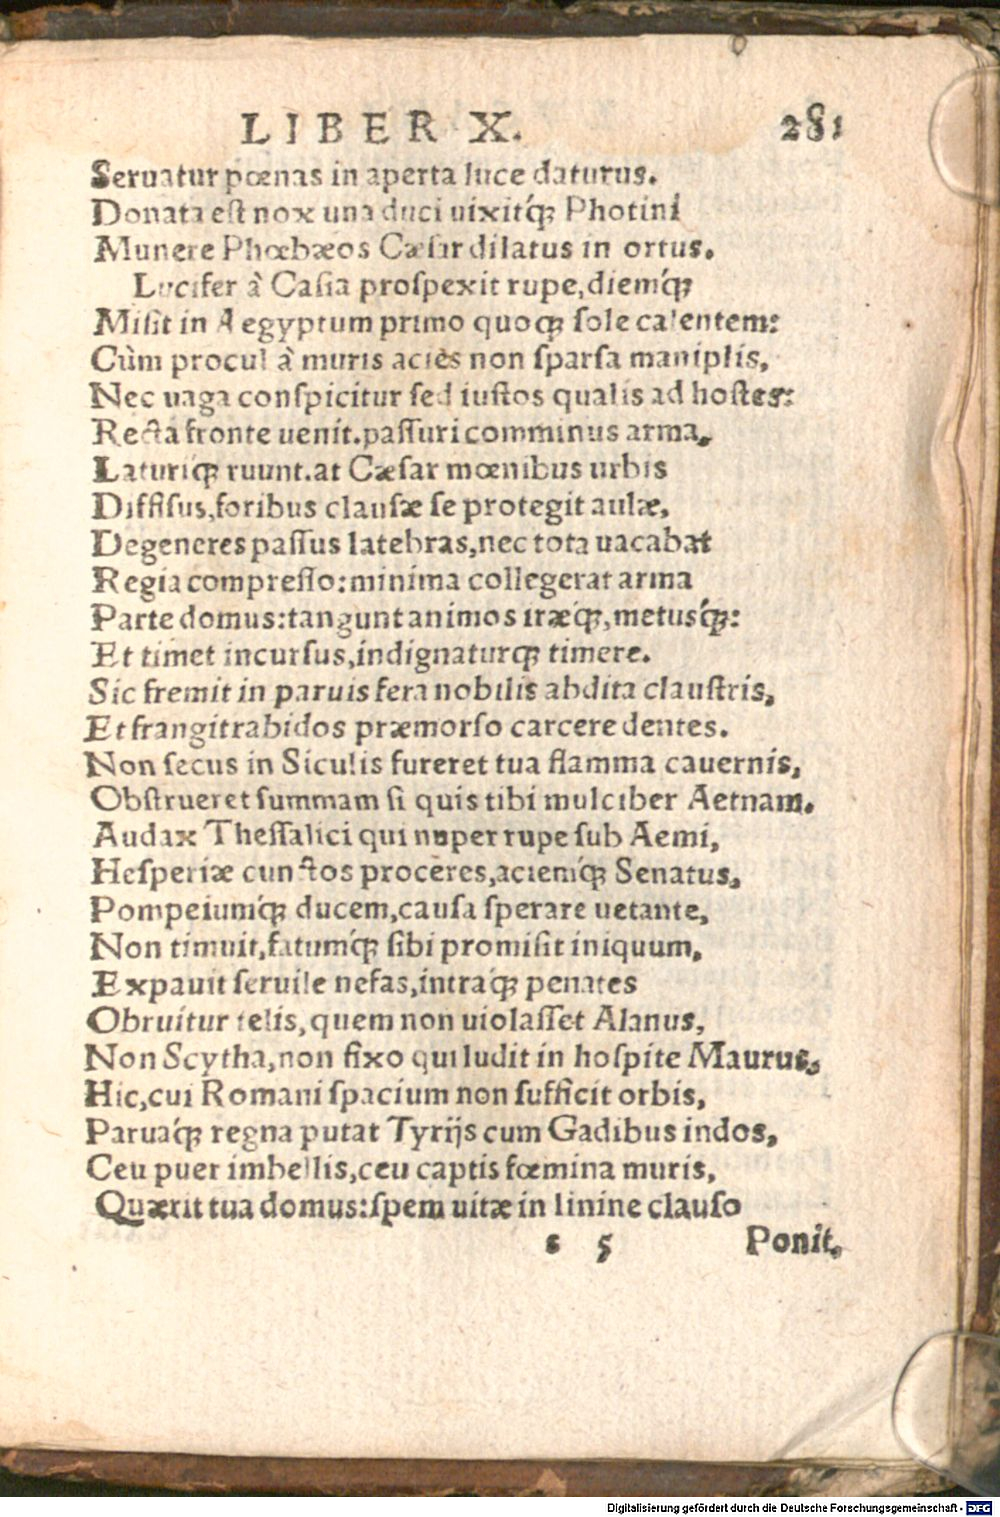 LIBER X. 281
Seruatur pœnas in aperta luce daturus.
Donata est nox una duci uixitq́ꝫ Photini
Munere Phœbæos Cæsar dilatus in ortus.
Lucifer à Casia prospexit rupe, diemq́ꝫ
Misit in Aegyptum primo quoqꝫ sole calentem:
Cùm procul à muris acies non sparsa maniplis,
Nec uaga conspicitur sed iustos qualis ad hostes:
Recta fronte uenit. passuri comminus arma,
Laturiq́ꝫ ruunt. at Cæsar mœnibus urbis
Diffisus, foribus clausæ se protegit aulæ,
Degeneres passus latebras, nec tota uacabat
Regia compresso: minima collegerat arma
Parte domus: tangunt animos iræq́ꝫ, metusq́ꝫ:
Et timet incursus, indignaturqꝫ timere.
Sic fremit in paruis fera nobilis abdita claustris,
Et frangit rabidos præmorso carcere dentes.
Non secus in Siculis fureret tua flamma cauernis,
Obstrueret summam si quis tibi mulciber Aetnam.
Audax Thessalici qui nuper rupe sub Aemi,
Hesperiæ cunctos proceres, aciemq́ꝫ Senatus,
Pompeiumq́ꝫ ducem, causa sperare uetante,
Non timuit, fatumq́ꝫ sibi promisit iniquum,
Expauit seruile nefas, intraq́ꝫ penates
Obruitur telis, quem non uiolasset Alanus,
Non Scytha, non fixo qui ludit in hospite Maurus,
Hic, cui Romani spacium non sufficit orbis,
Paruaq́ꝫ regna putat Tyrijs cum Gadibus indos,
Ceu puer imbellis, ceu captis fœmina muris,
Quærit tua domus: spem uitæ in linine clauso
s 5 Ponit.
Digitalisierung gefördert durch die Deutsche Forschungsgemeinschaft - DFG